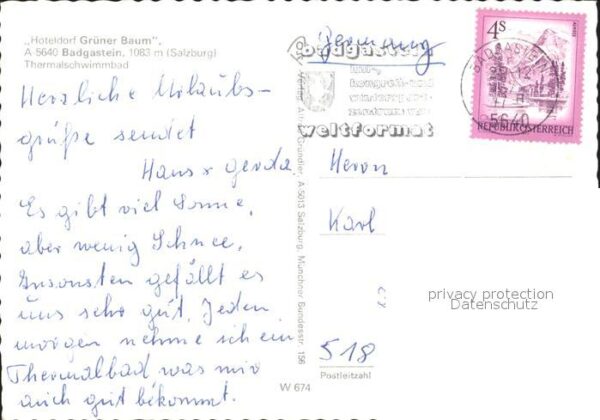 „Hoteldorf Grüner Baum",
A 5640 Badgastein, 1083 m (Salzburg)
Thermalschwimmbad
Herzliche Urlaubs-
grüße sendet
Hans x Gerda
Es gibt viel Sonne,
aber wenig Schnee.
Ansonsten gefällt es
uns sehr gut. Jeden
morgen nehme ich ein
Thermalbad was mir
auch gut bekommt.
Verlag Alfred Gründler, A-5013 Salzburg, Münchner Bundesstr. 156
W 674
badgastein
kur-,
kongreß- und
wintersport-
zentrum von
weltformat
Germany
4S
REPUBLIK ÖSTERREICH
BADGASTEIN
5640
Herrn
Karl
518
Postleitzahl
privacy protection
Datenschutz